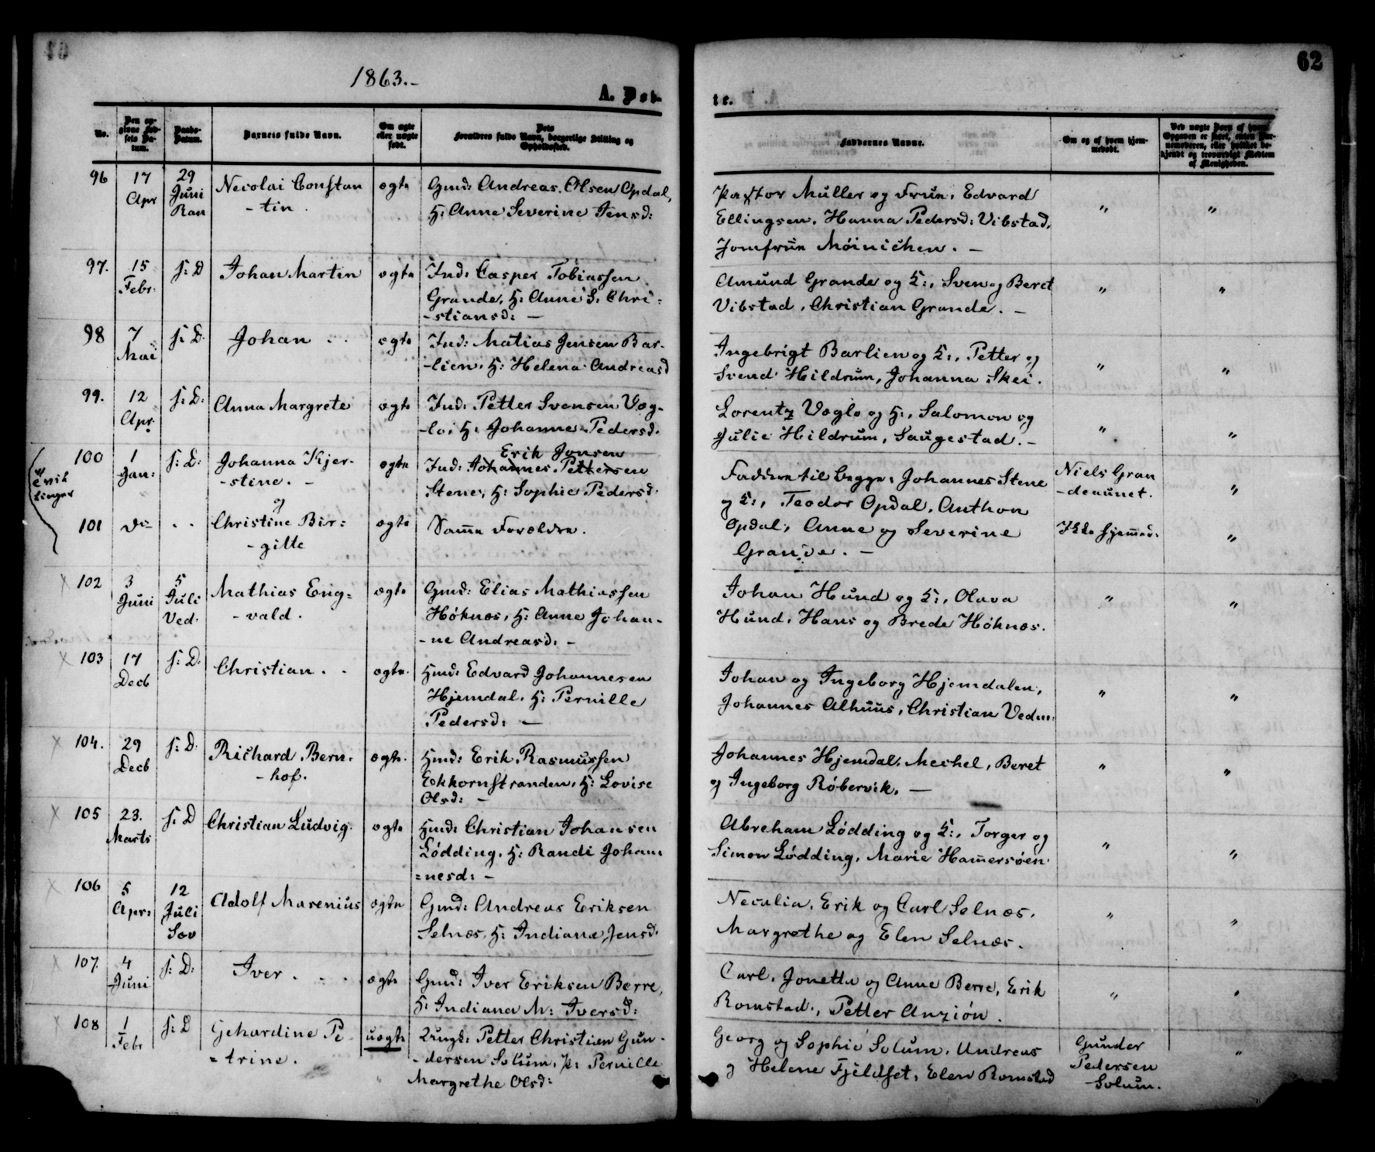 62
1863.-
A. Fød-
te.
No.
Den opgivne Fødsels Datum.
Daabs-Datum.
Barnets fulde Navn.
Om ægte eller uægte født.
Dets Forældres fulde Navn, borgerlige Stilling og Opholdssted.
Faddernes Navne.
Om og af hvem hjemmedøbt.
96 17 Apr 29 Juni Ran Necolai Constan-tin. ægte Gmd: Andreas Olsen Opdal,
H: Anne Severine Jensd:
Pastor Müller og Frue, Edvard
Ellingsen, Hanna Pedersd: Vibstad,
Jomfrue Móinichen. - " "
97. 15 Febr. s: D Johan Martin ægte Ind: Casper Tobiassen
Grande, H: Anne S. Chri-
-stiansd: -
Amund Grande og K:, Sven og Beret
Vibstad, Christian Grande. - " "
98 7 Mai s: D. Johan ægte Ind: Matias Jensen Bar-
-lien, H: Helena Andreasd
Ingebrigt Barlien og K:, Petter og
Svend Hildrum, Johanna Skei. " "
99. 12 Apr. s: D: Anna Margrete ægte Ind: Petter Svensen Vog-
-lo, H: Johanne Pedersd.
Lorentz Voglo og H:, Salomon og
Julie Hildrum, Saugestad. - " "
Tvil
linger
100 1 Jan: s: D: Johanna Kjer-
-stine. - ægte Erik Jonsen
Ind: Johannes Pettersen
Stene, H: Sophie Pedersd:
Faddere til begge, Johannes Stene
og K:, Teodor Opdal, Anthon
Niels Gran
-deaunet. "
101 do Christine Bir-
-gitte ægte Samme Forældre.
Opdal, Anne og Severine
Grande. -
Ikke hjemmed: "
102 3 Juni 5 Juli Ved. Mathias Eng-
-vald. ægte Gmd: Elias Mathiassen
Høknæs, H: Anne Johan-
-ne Andreasd. -
Johan Hund og K:, Olava
Hund, Hans og Brede Høknæs. " "
103 17 Decb s: D. Christian. ægte. Hmd: Edvard Johannesen
Hjemdal, H: Pernille
Pedersd: -
Johan og Ingeborg Hjemdalen,
Johannes Alhuus, Christian Vedm: " "
104. 29 Decb s: D. Richard Bern-
-hof. ægte. Hmd: Erik Rasmussen
Ekkornstranden, H: Lovise
Olsd: -
Johannes Hjemdal, Mechel, Beret
og Ingeborg Røbervik. - " "
105 23. Marts s: D Christian Ludvig. ægte Hmd: Christian Johansen
Lødding, H: Randi Johan-
=nesd: -
Abreham Lødding og K:, Torger og
Simon Lødding, Marie Hamersøen " "
106 5 Apr: 12 Juli Sæv Adolf Marenius ægte Gmd: Andreas Eriksen
Selnæs, H: Indiana Jensd:
Necolia, Erik og Carl Selnæs,
Margrethe og Elen Selnæs. " "
107. 4 Juni s: D: Iver ægte Gmd: Iver Eriksen Berre,
H: Indiana M: Iversd:
Carl, Jonetta og Anne Berre, Erik
Romstad, Petter Anzión. " "
108 1 Febr s: D Gehardine Pe-
=trine. uægte Ungd: Petter Christian Gun-
-dersen Solum, P: Pernille
Margrethe Olsd:
Georg og Sophie Solum, Andreas
og Helene Fjeldset, Elen Romstad
Gunder
Pedersen
Solum. "